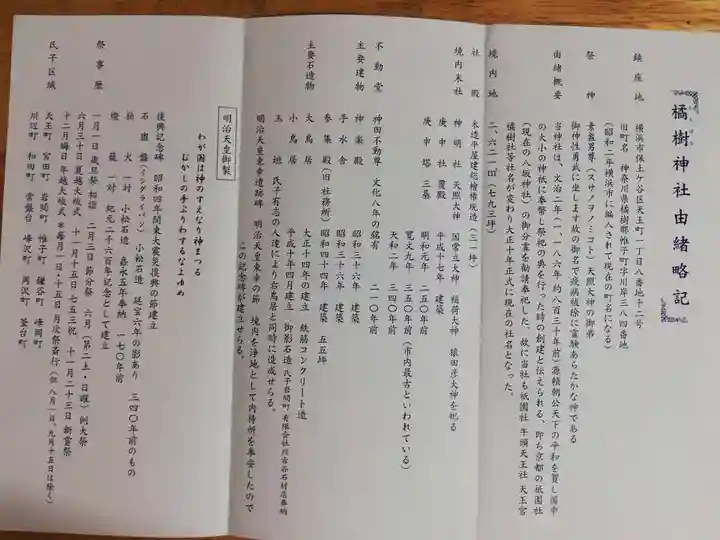 橘樹神社由緒略記
鎮座地 横浜市保土ケ谷区天王町一丁目八番地十二号
旧町名 神奈川県橘樹郡帷子町字川岸三八四番地
(昭和二年横浜市に編入されて現在の町名になる)
祭神 素盞男尊(スサノヲノミコト)天照大神の御弟
御神性勇武に坐します故の御名で疫病祓徐に霊験あらたかな神である
由緒概要 当神社は、文治二年(一、一八六年 約八百三十年前)源頼朝公天下の平和を賀し国中
の大小の神祇に奉幣し祭祀の典を行った時の創建と伝えられる、即ち京都の祇園社
(現在の八坂神社)の御分霊を勧請奉祀した、故に当社も祇園社 牛頭天王社 天王宮
橘樹社等社名が変わり大正十年正式に現在の社名となった。
境内地 二、六二一㎡(七九三坪)
社殿 木造平屋建総檜市炭造(三一坪)
境内末社 神明社 天照大神 国常立大神 稲荷大神 猿田彦大神を祀る
庚申社覆殿 平成十七年 建築
庚申塔 三基 明和元年 二五〇年前
寛文九年 三五〇年前(市内最古といわれている)
天和二年 三四〇年前
不動堂 神田不動尊 文化八年の銘有 二一〇年前
主要建物 神楽殿 昭和三十六年 建築
手水舎 昭和三十六年 建築
参集殿(旧社務所) 昭和四十四年 建築 五五坪
主要石造物 大鳥居 大正十四年の建立 鉄筋コンクリート造
小鳥居 平成十年四月建立 御影石造 氏子岩間町有限会社 石材店奉納
玉垣 氏子有志の人達により右鳥居と同時に造成せらる。
明治天皇東幸遺跡碑 明治天皇東幸の節 境内を浄地として内侍所を奉安したので
この記念碑が建立せらる。
明治天皇御製
わが国は神のすえなり神まつる
むかしの手ぶりわするなよゆめ
復興記念碑 昭和四年関東大震災復興の節建立
石盥盤(イシグライバン) 小松石造 延宝六年の影あり 三四〇年前のもの
狛犬 一対 小松石造 嘉永五年奉納 一七〇年前
燈籠 一対 紀元二千六百年記念として建立
祭事歴 一月一日 歳旦祭 初詣 二月三日 節分祭 六月(第二土・日曜)例大祭
六月三十日 夏越大祓式 十一月十五日 七五三祝 十一月二十三日 新嘗祭
十二月晦日 年越大祓式 ※毎月一日・十五日 月次祭斎行(但八月一日、九月十五日は除く)
氏子区域 天王町 宮田町 岩間町 帷子町 鎌谷町 峰岡町
川辺町 和田町 常盤台 峰沢町 岡沢町 釜台町